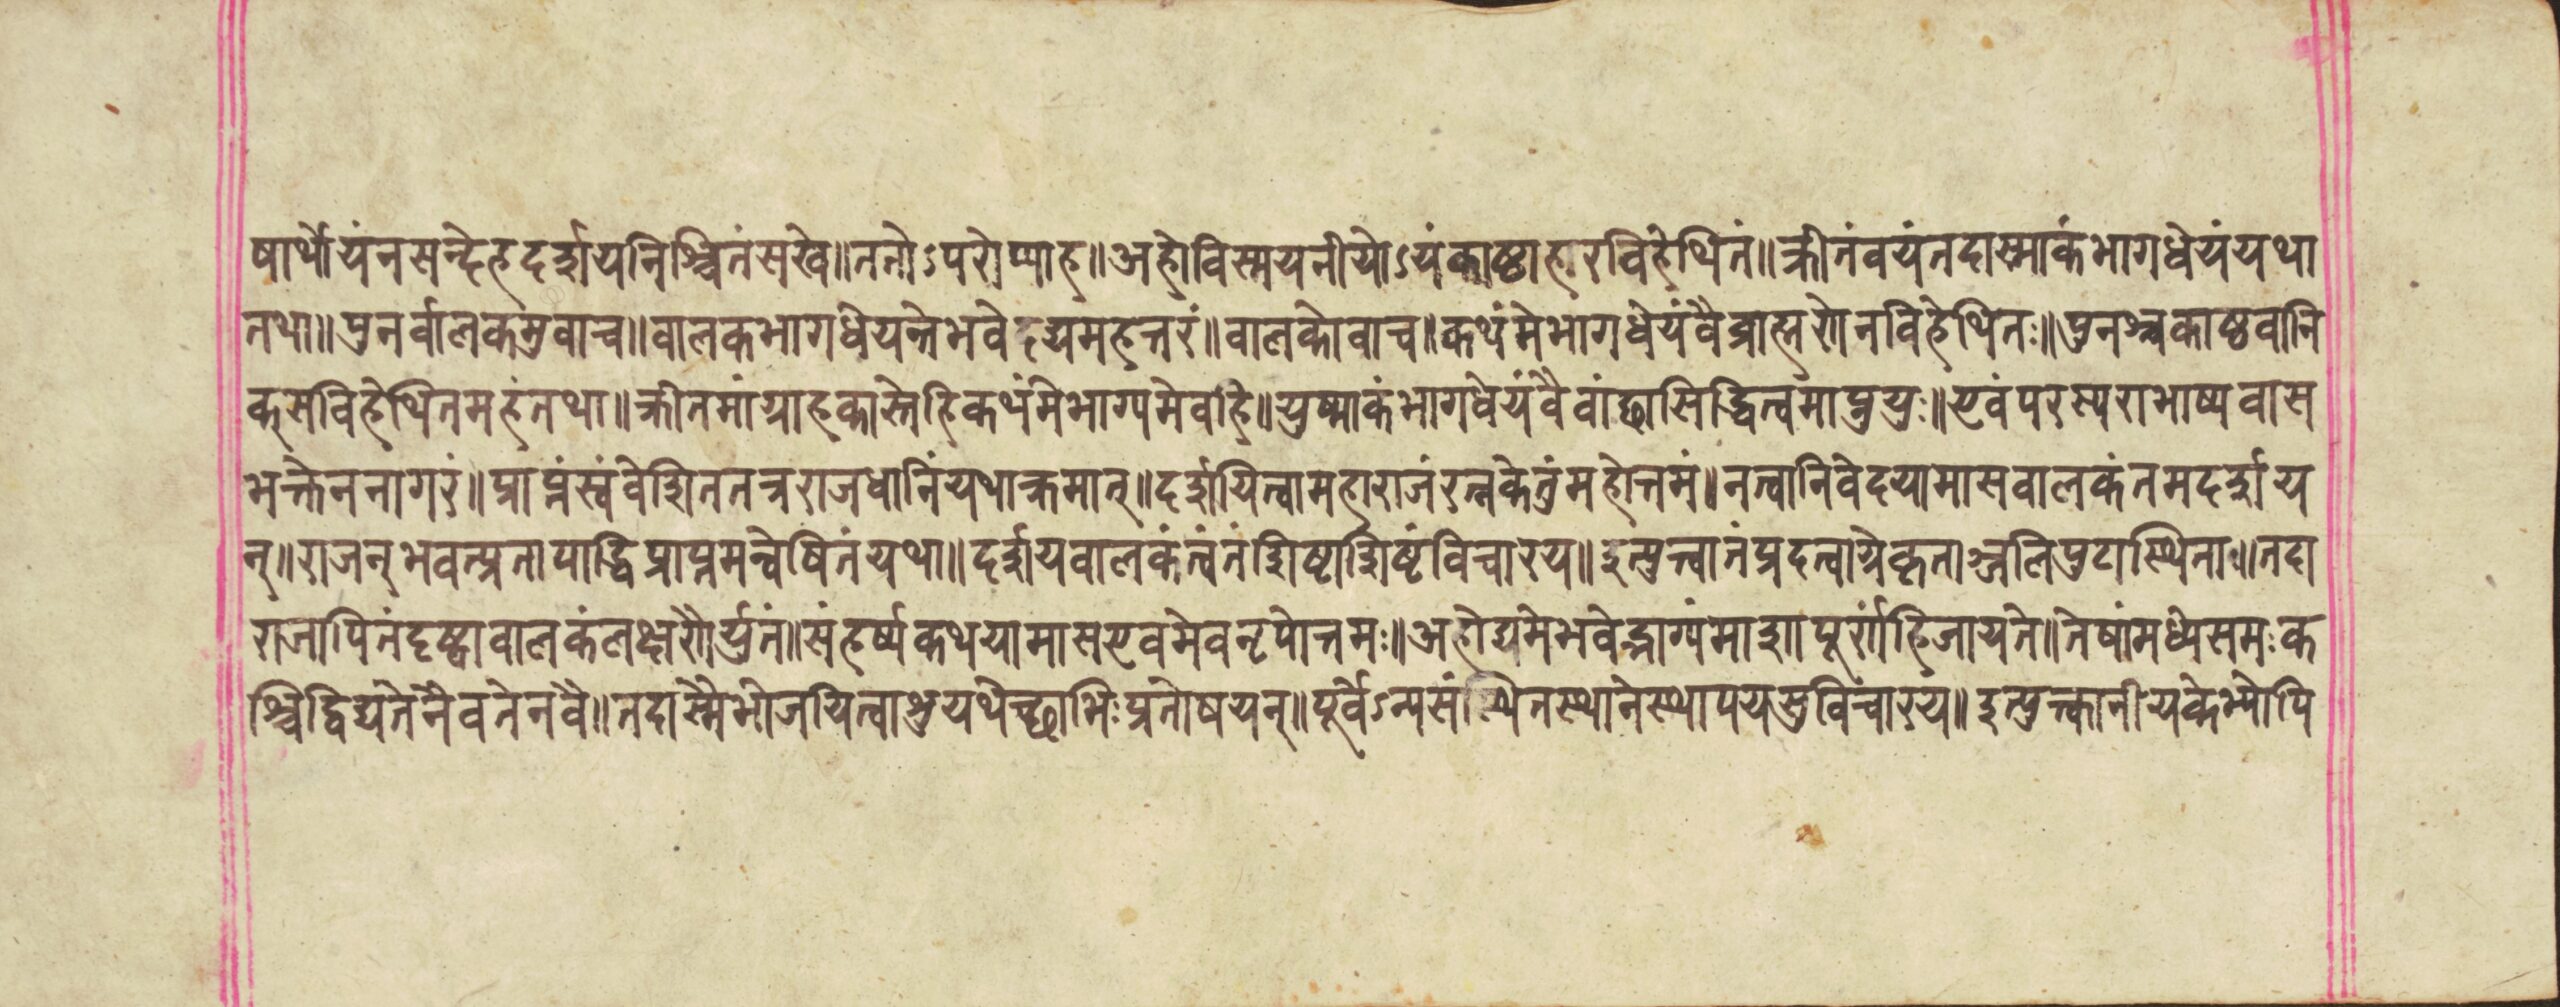 षार्थो यं न सन्देह दर्शाय निश्चितं सखे॥ ततोऽपरोप्याह॥ अहो विस्मयनीयोऽयं काष्ठाहारविहेथितं॥ क्रीतं वयं तदास्माकं भागधेयं यथा
तथा॥ पुनर्वालकमुवाच॥ वालक भागधेयन्ते भवेदद्यमहत्तरं॥ वालकोवाच॥ कथं मे भागधेयं वै ब्राह्मणेन विहेथितः॥ पुनश्च काष्ठवानि
कस विहेथितमहं तथा॥ क्रीत मां ग्राहकास्ते हि कथं मे भाग्यमेव हि॥ युष्माकं भागधेयं वै वांछासिद्धित्वमाप्नुयुः॥ एवं परस्पराभाष्य वास
भक्तेन नागरं॥ प्राप्तं स्वं वेशित तत्र राजधानिं यथाक्रमात्॥ दर्शायित्वा महाराजं रत्नकेतुं महोत्तमं॥ नत्वा निवेदयामास वालकं तमदर्शाय
न्॥ राजन् भवत्प्रतापाद्धि प्राप्तमन्वेषितं यथा॥ दर्शाय वालकं त्वं तं शिष्टाशिष्टं विचारय॥ इत्युक्त्वा तं प्रदत्वाग्रे कृताञ्जलिपुटास्थिता॥ तदा
राजापि तं दृष्ट्वा वालकं लक्षणैर्युतं॥ संहर्ष्य कथयामास एवमेव नृपोत्तमः॥ अहोद्य मे भवेद्भाग्यं माशा पूर्णा हि जायते॥ तेषां मध्ये समः क
श्चिद्विद्यते नैव तेन वै॥ तदास्मै भोजयित्वाशु यथेच्छाभिः प्रतोषयन्॥ पूर्वेऽन्यसंस्थितस्थाने स्थापयसु विचारयं॥ इत्युक्त्कानीयकेभ्योपि